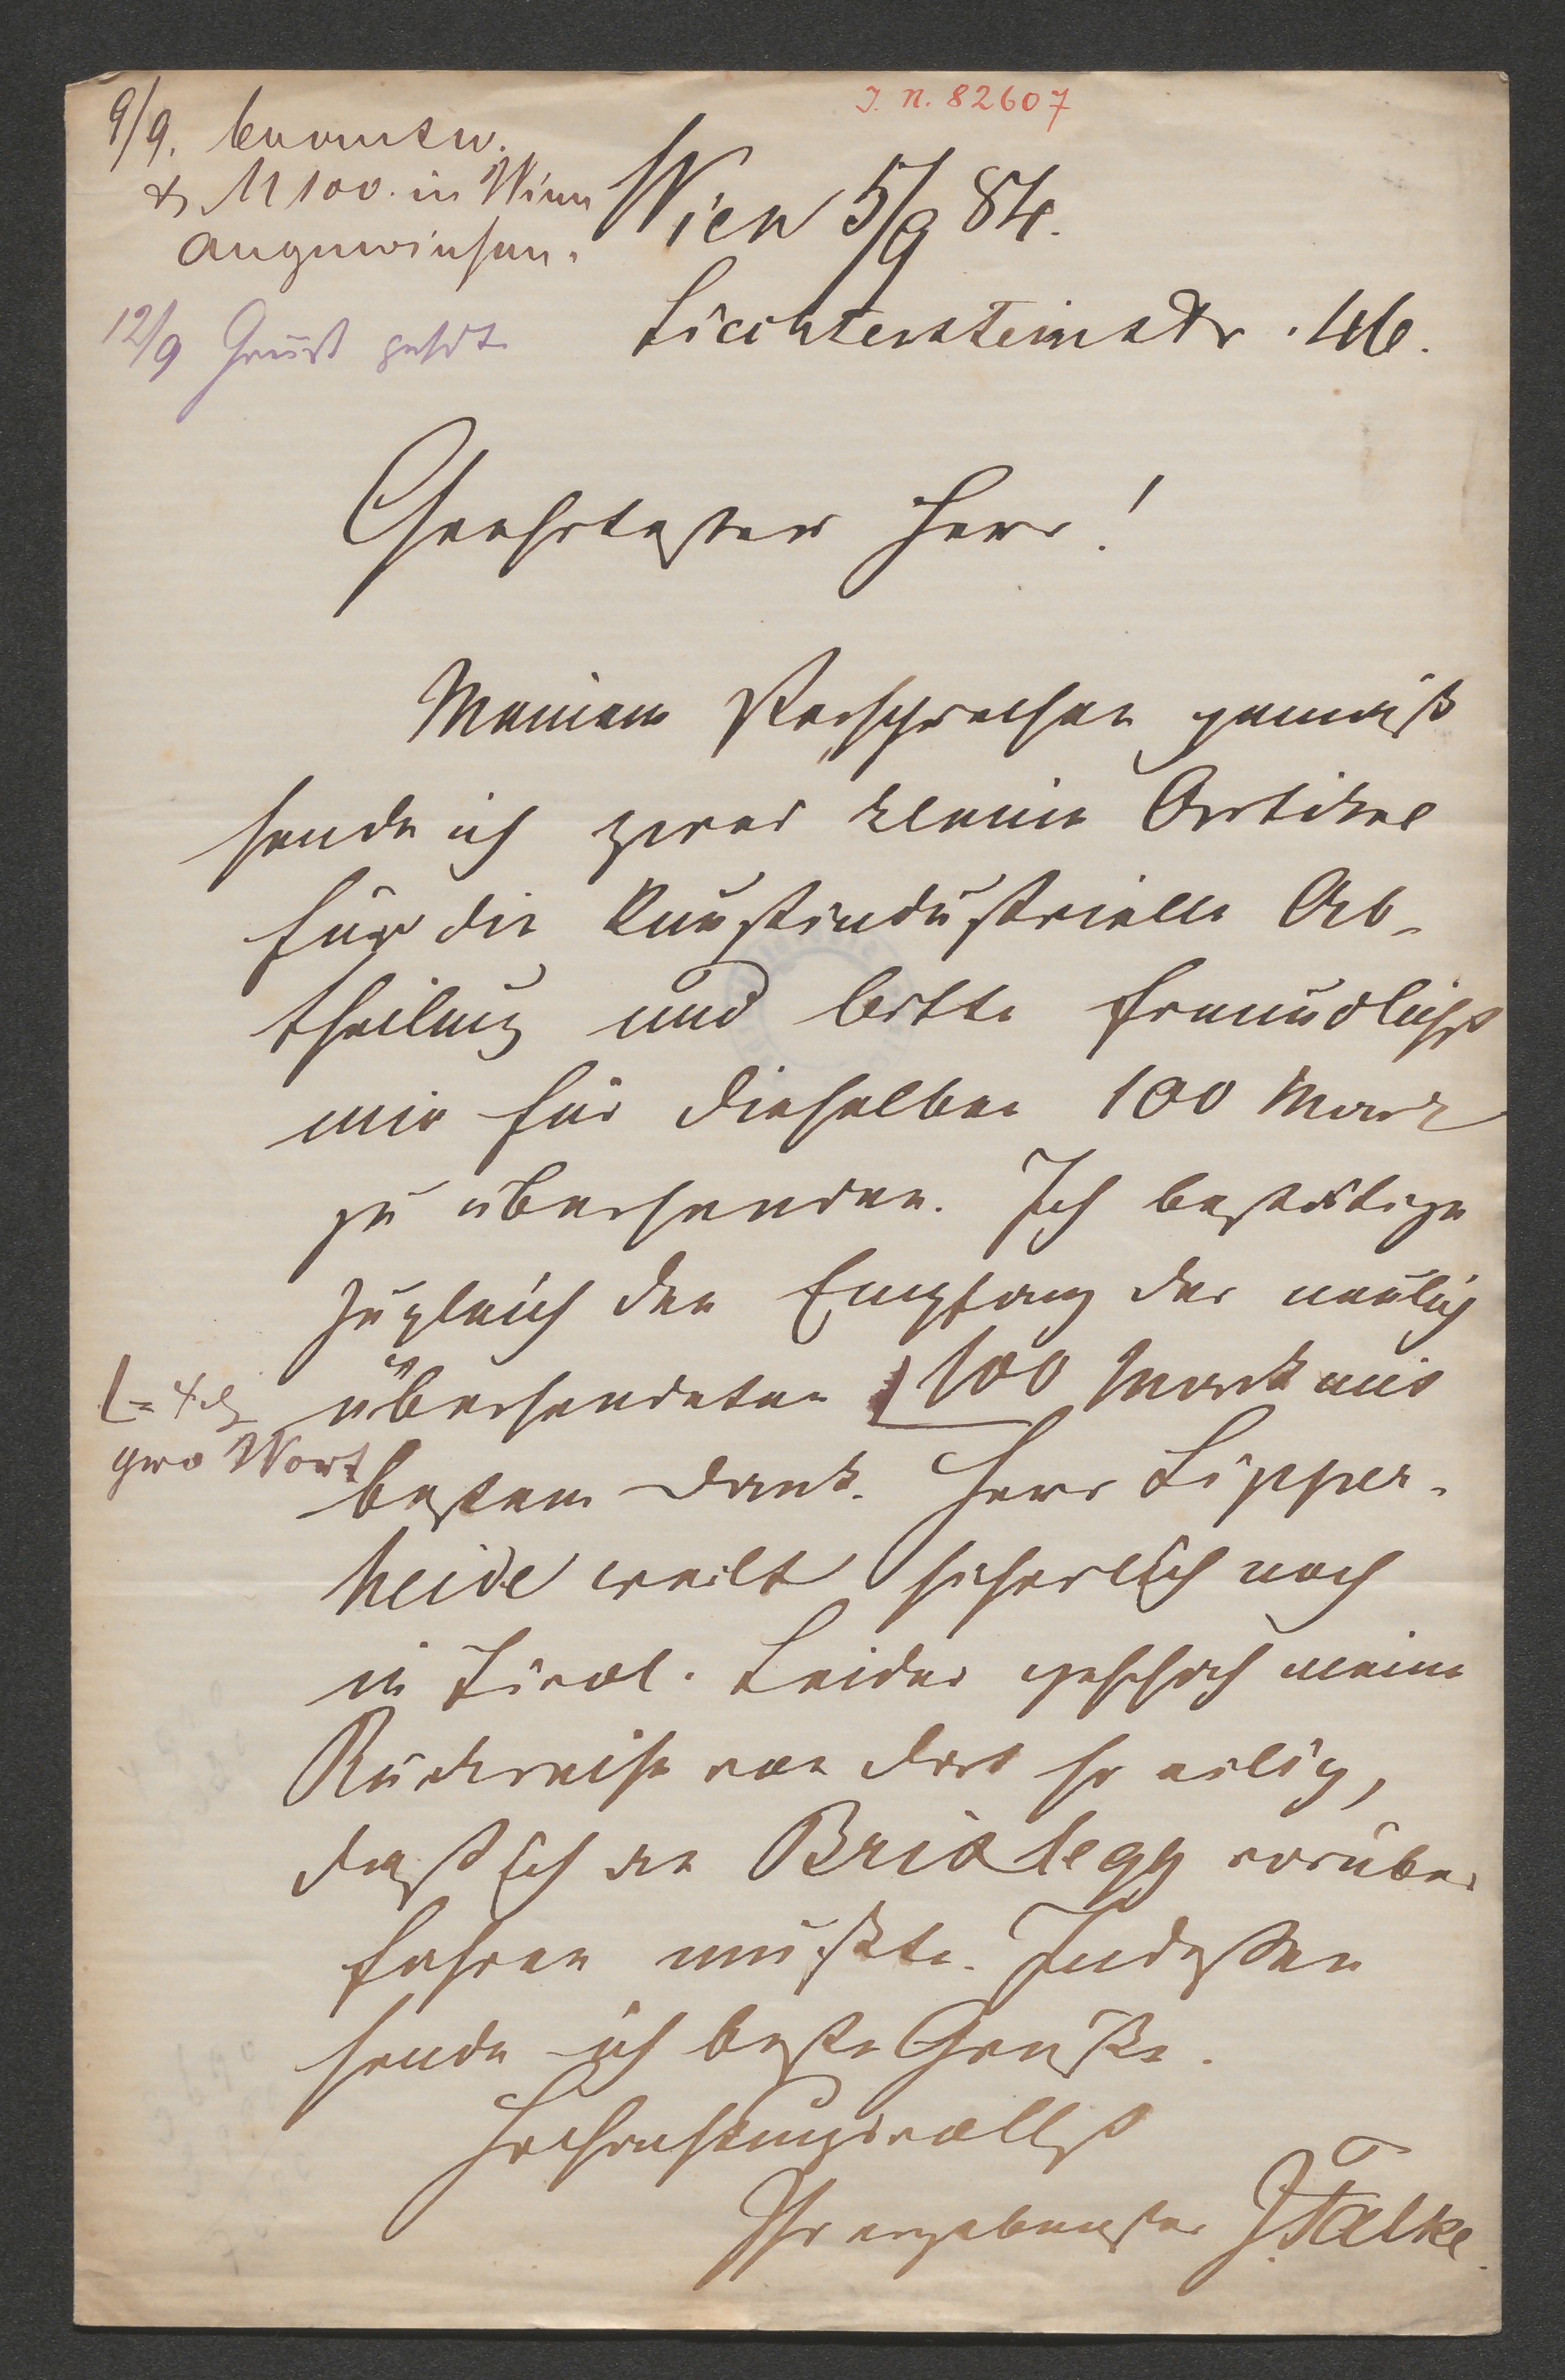 J. N. 82607
9/9. beantw.
& M 100. in Wien
angewiesen.
12/9
Wien 5/9 84.
Liechtensteinstr. 46.
Geehrtester Herr!
Meinem Versprechen gemäß
sende ich zwei kleine Artikel
für die kunstindustrielle Ab-
theilung und bitte freundlichst
mir für dieselben 100 Mark
zu übersenden. Ich bestätige
zugleich den Empfang der neulich
übersendeten 100 Mark mit
pro Wort
bestem Dank. Herr Lipper-
heide weilt sicherlich noch
in Tirol. Leider geschah meine
Rückreise von dort so eilig,
daß ich an Brixlegg vorüber
fahren mußte. Indessen
sende ich beste Grüße.
Hochachtungsvollst
Ihr ergebenster J. Falke.